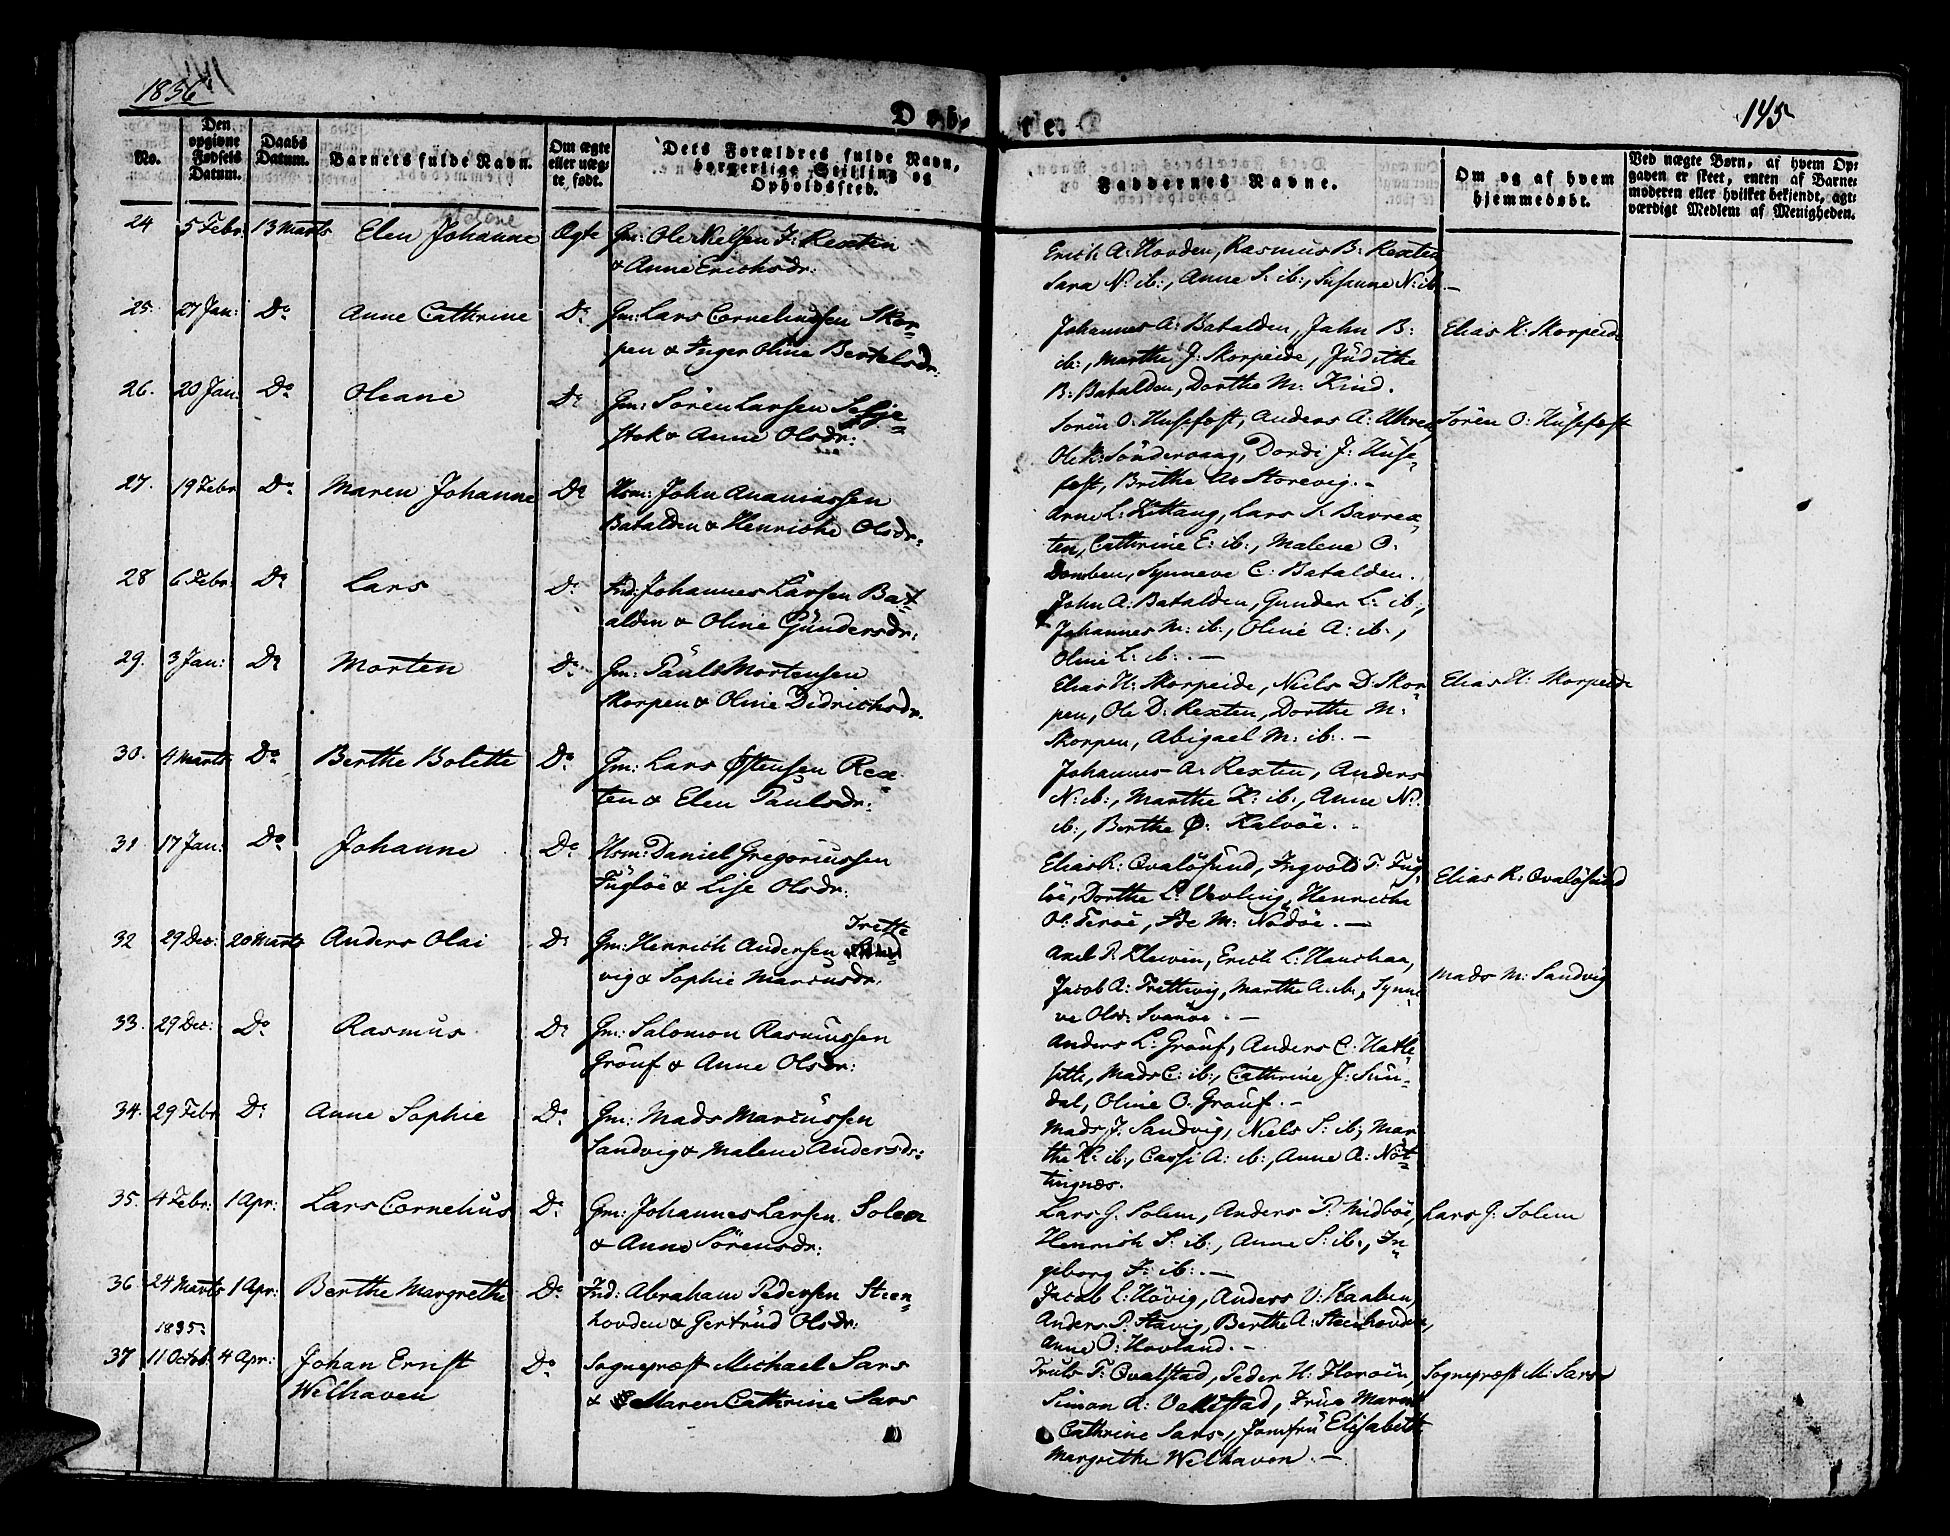 1836
145
Døb-
te.
No.
Den opgivne Fødsels Datum.
Daabs Datum.
Barnets fulde Navn.
Om ægte eller uæg-te født.
Dets Forældres fulde Navn, borgerlige Stilling og Opholdssted.
Faddernes Navne.
Om og af hvem hjemmedøbt.
Ved uægte Børn, af hvem Op-gaven er skeet, enten af Barne-moderen eller hvilket bekjendt, agt-værdigt Medlem af Menigheden.
24 5 Febr: 13 Marts Elen Johanne Ægte Gm: Ole Nelsen Rexten
& Anne Erichsdr:
Erich A: Hovden, Rasmus B: Rexten
Sara N: ib:, Anne S: ib:, Susanne N: ib. —
25. 27 Jan: Do Anne Cathrine Do Gm: Lars Corneliussen Skor-
pen & Inger Oline Bertelsdr:
Johannes A: Batalden, Jahn B:
ib:, Marthe J: Skorpeide, Judithe
B: Batalden, Dorthe M: Kind.
Elias H: Skorpeide
26. 20 Jan: Do Oleane Do Gm: Sören Larsen Selje-
stok & Anne Olsdr:
Sören O: Husefest, Anders A:
Ole K: Söndervaag, Dordi J: Huse-
fest, Brithe A: Storevig. -
Sören O: Husefest
27. 19 Febr Do Maren Johanne Do Hsm: John Ananiassen
Batalden & Henriche Olsdr:
Arne L: Kittang, Lars S. Barrex-
ten, Cathrine E: ib:, Malene O:
Domben, Synneve C: Batalden.
28 6 Febr: Do Lars Do Ind: Johannes Larsen Bat-
alden & Oline Gundersdr:
John A: Batalden, Gunder L: ib:,
Johannes M: ib:, Oline A: ib:,
Oline L: ib:. —
29. 3 Jan: Do Morten Do Gm: Paul Mortensen
Skorpen & Oline Didrichsdr.
Elias H: Skorpeide, Niels D: Skor-
pen, Ole D: Rexten, Dorthe M:
Skorpen, Abigael M: ib:. —
Elias H: Skorpeide
30. 4 Marts Do Berthe Bolette Do Gm: Lars Østensen Rex-
ten & Elen Paulsdr:
Johannes A: Rexten, Anders
N: ib:, Marthe K: ib:, Anne N:
ib:, Berthe Ø: Kalvöe. -
31 17 Jan: Do Johanne Do Hsm: Daniel Gregoriussen
Fuglöe & Lise Olsdr:
Elias R: Qvalösund, Ingvold T: Fug-
löe, Dorthe L: Vevling, Henriche
O: Teröe, Ide M: Nödöe. —
Elias R: Qvalösund
32 29 Dec: 20 Marts Anders Olai Do Gm: Henrich Andersen Trette
vig & Sophie Marcusdr:
Axel P. Kleiven, Erich L: Haushaa,
Jacob A: Trettevig, Marthe A: ib:, Synne-
ve Olsd: Svanöe. -
Mads M: Sandvig
33. 29 Dec: Do Rasmus Do Gm: Salomon Rasmussen
Gröuf & Anne Olsdr:
Anders L: Gröuf, Anders C: Hatle-
sette, Mads C: ib:, Cathrine J: Sun-
dal, Oline O: Gröuf. -
34. 29 Febr. Do Anne Sophie Do Gm: Mads Marcussen
Sandvig & Malene Andersdr:
Mads J: Sandvig, Niels S: ib:, Mar-
the K: ib:, Cassi A: ib:, Anne A: Nöt-
tingnæs.
35. 4 Febr: 1 Apr: Lars Cornelius Do Gm: Johannes Larsen Solem
& Anne Sörensdr:
Lars G: Solem, Anders P: Midböe,
Henrich S: ib:, Anne S: ib:, In-
geborg ib: —
Lars G: Solem
36 24 Marts 1 Apr: Berthe Margrethe Do Ind: Abraham Pedersen Steen-
hovden & Gertrud Olsdr:
Jacob L: Hövig, Anders O: Kaaben,
Anders P: Stavig, Berthe A: Steenhovden,
Anne O: Hovland. -
1835:
37 11 Octob: 4 Apr: Johan Ernst
Welhaven
Do Sognepræst Michael Sars
& Maren Cathrine Sars
Truls T: Qvalstad, Peder H: Floröen,
Simon A: Vallestad, Frue Maren
Cathrine Sars, Jomfru Elisabeth
Margrethe Welhaven. —
Sognepræst M: Sars